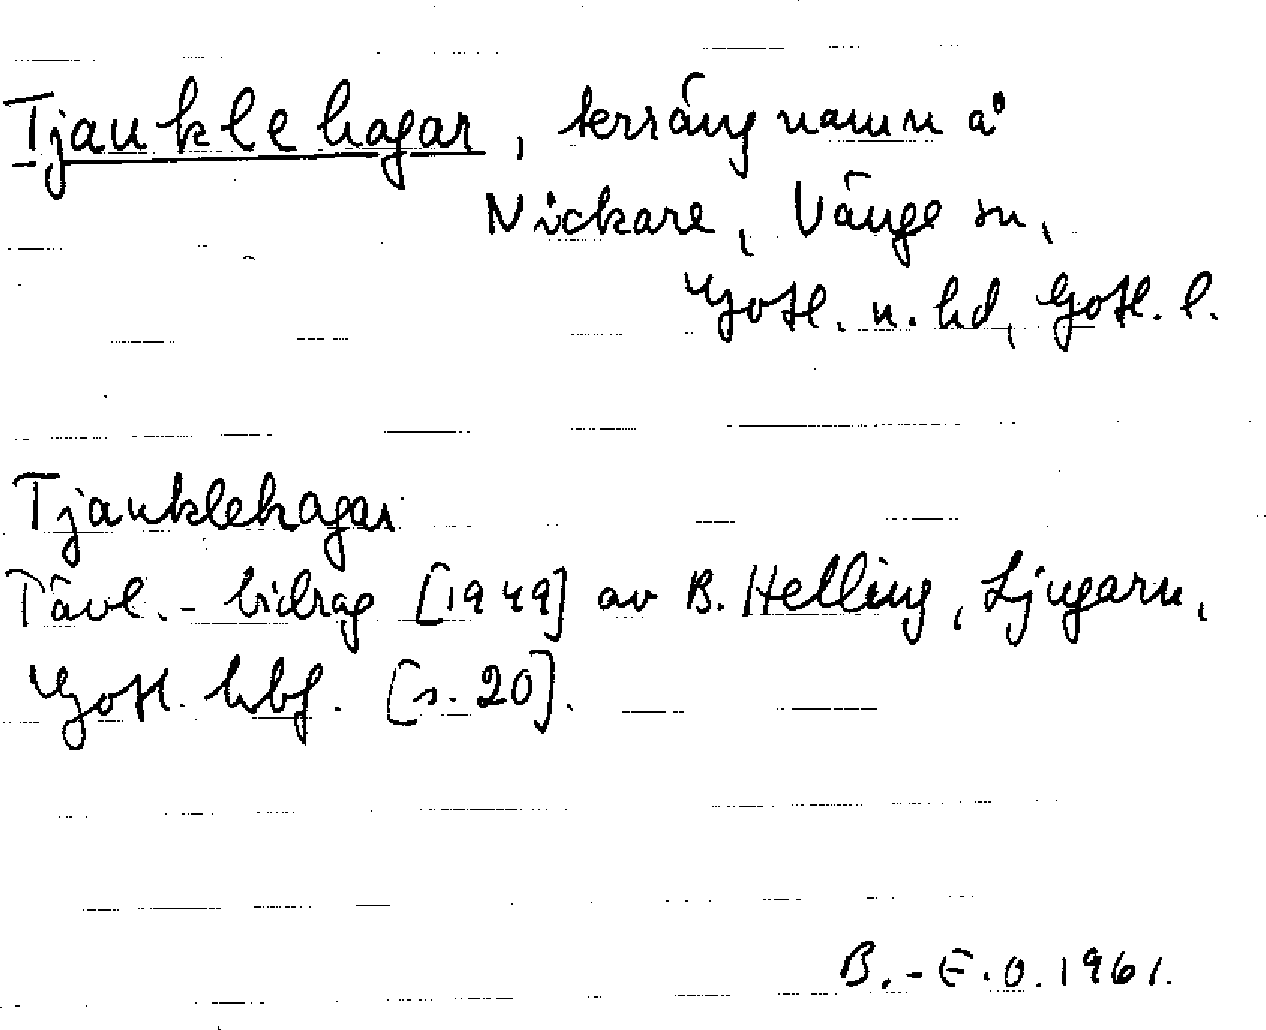 Tjauklehagar, terrängnamn å
Nickare, Vänge sn,
Gotl. n. hd, Gotl. l.
Tjauklehagar
Tävl.-bidrag [1949] av B. Helling, Ljugarn,
Gotl. hbf. [s. 20].
B.-E.O. 1961.